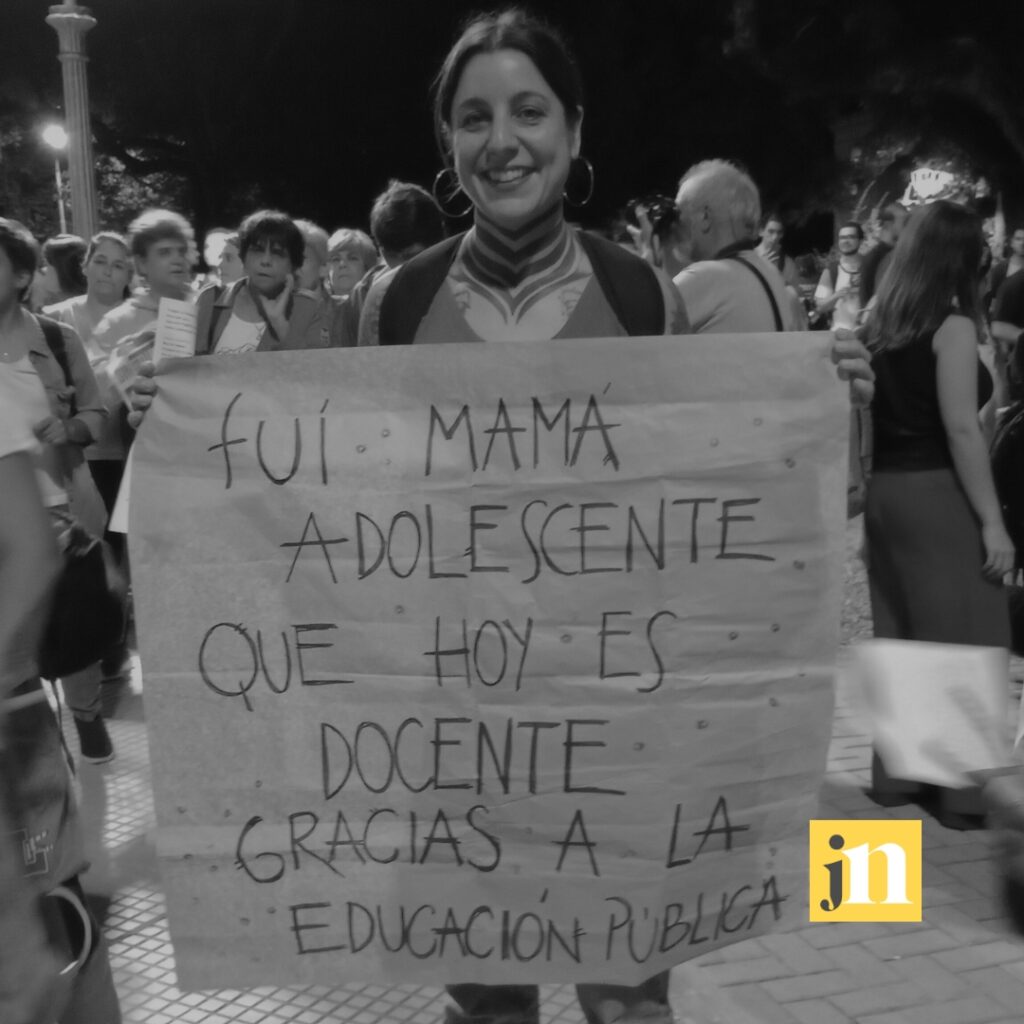 fUÍ MAMÁ
ADOLESCENTE
QUE HOY ES
DOCENTE
GRACIAS A LA
EDUCACIÓN PÚBLICA
jn